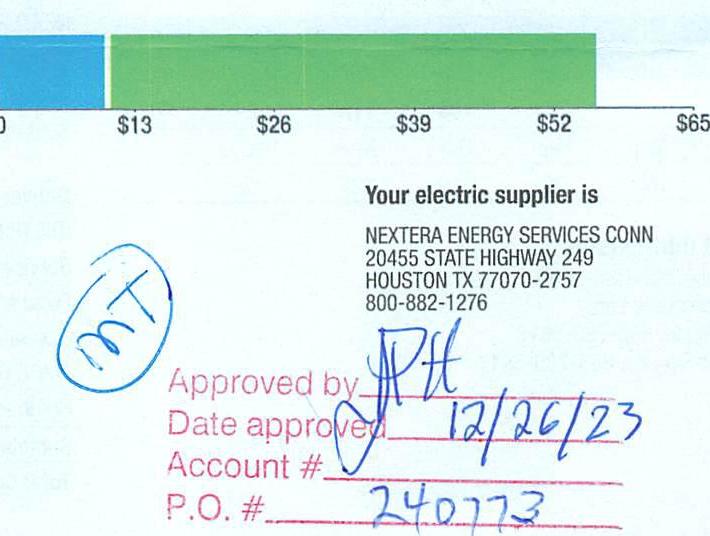 0 $13 $26 $39 $52 $65
Your electric supplier is
NEXTERA ENERGY SERVICES CONN
20455 STATE HIGHWAY 249
HOUSTON TX 77070-2757
800-882-1276
MT
Approved by JPH
Date approved 12/26/23
Account #
P.O. # 240773